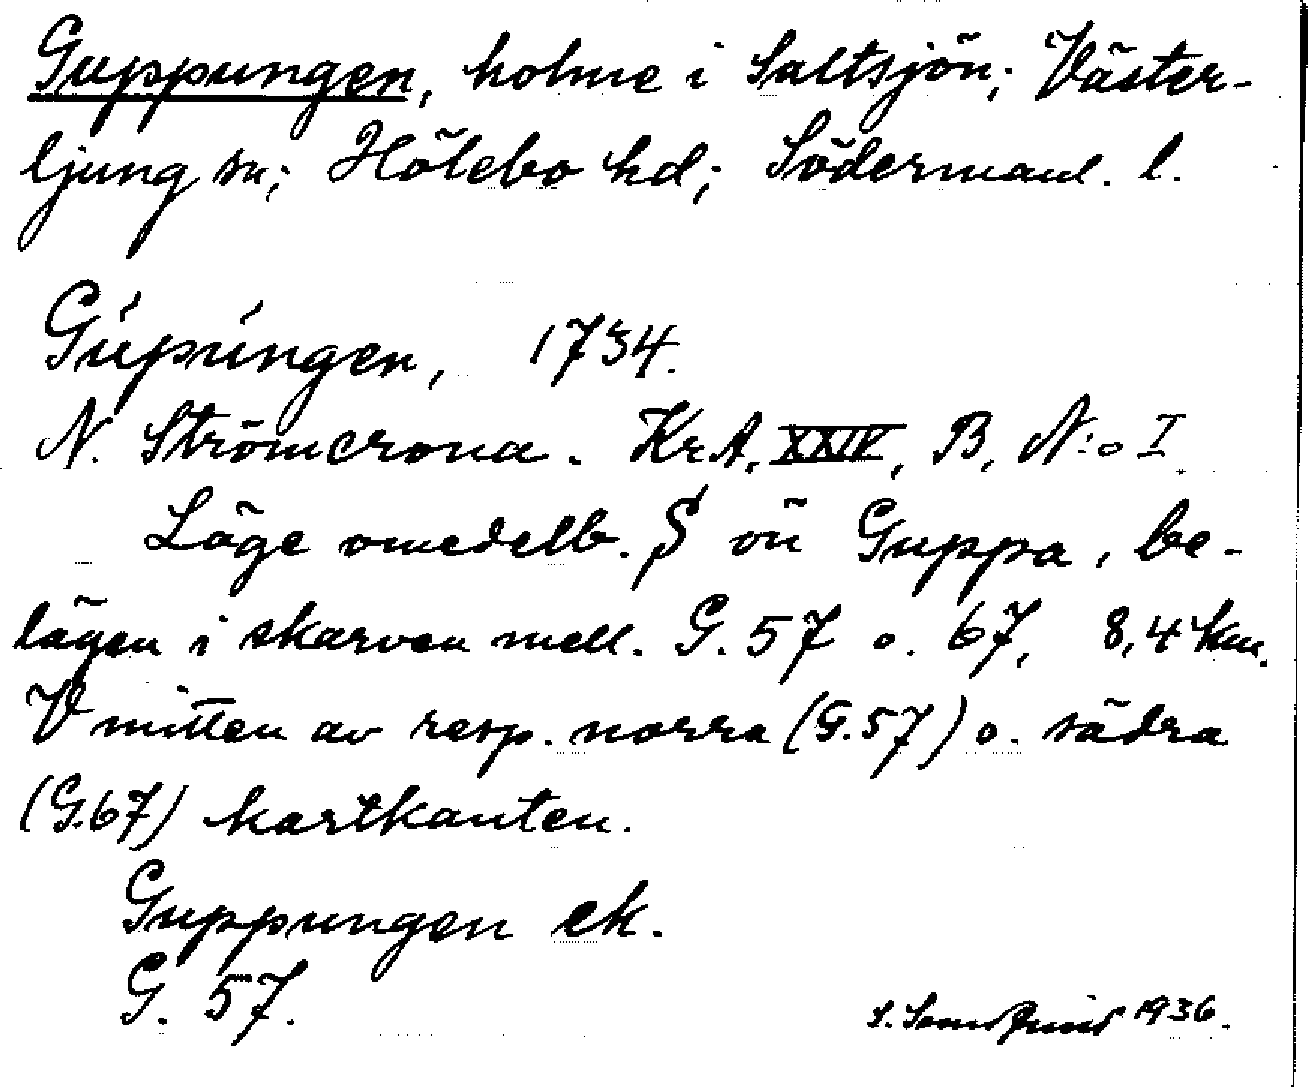 Guppungen, holme i Saltsjön; Väster-
ljung sn; Hölebo hd; Södermanl. l.
Gúpúngen, 1734.
N. Strömcrona. KrA, XXIV, B, N:o I
Läge omedelb. S ön Guppa, be-
lägen i skarven mell. G. 57 o. 67, 8,4 km.
V mitten av resp. norra (G.57) o. södra
(G.67) kartkanten.
Guppungen ek.
G. 57.
S. 1936.